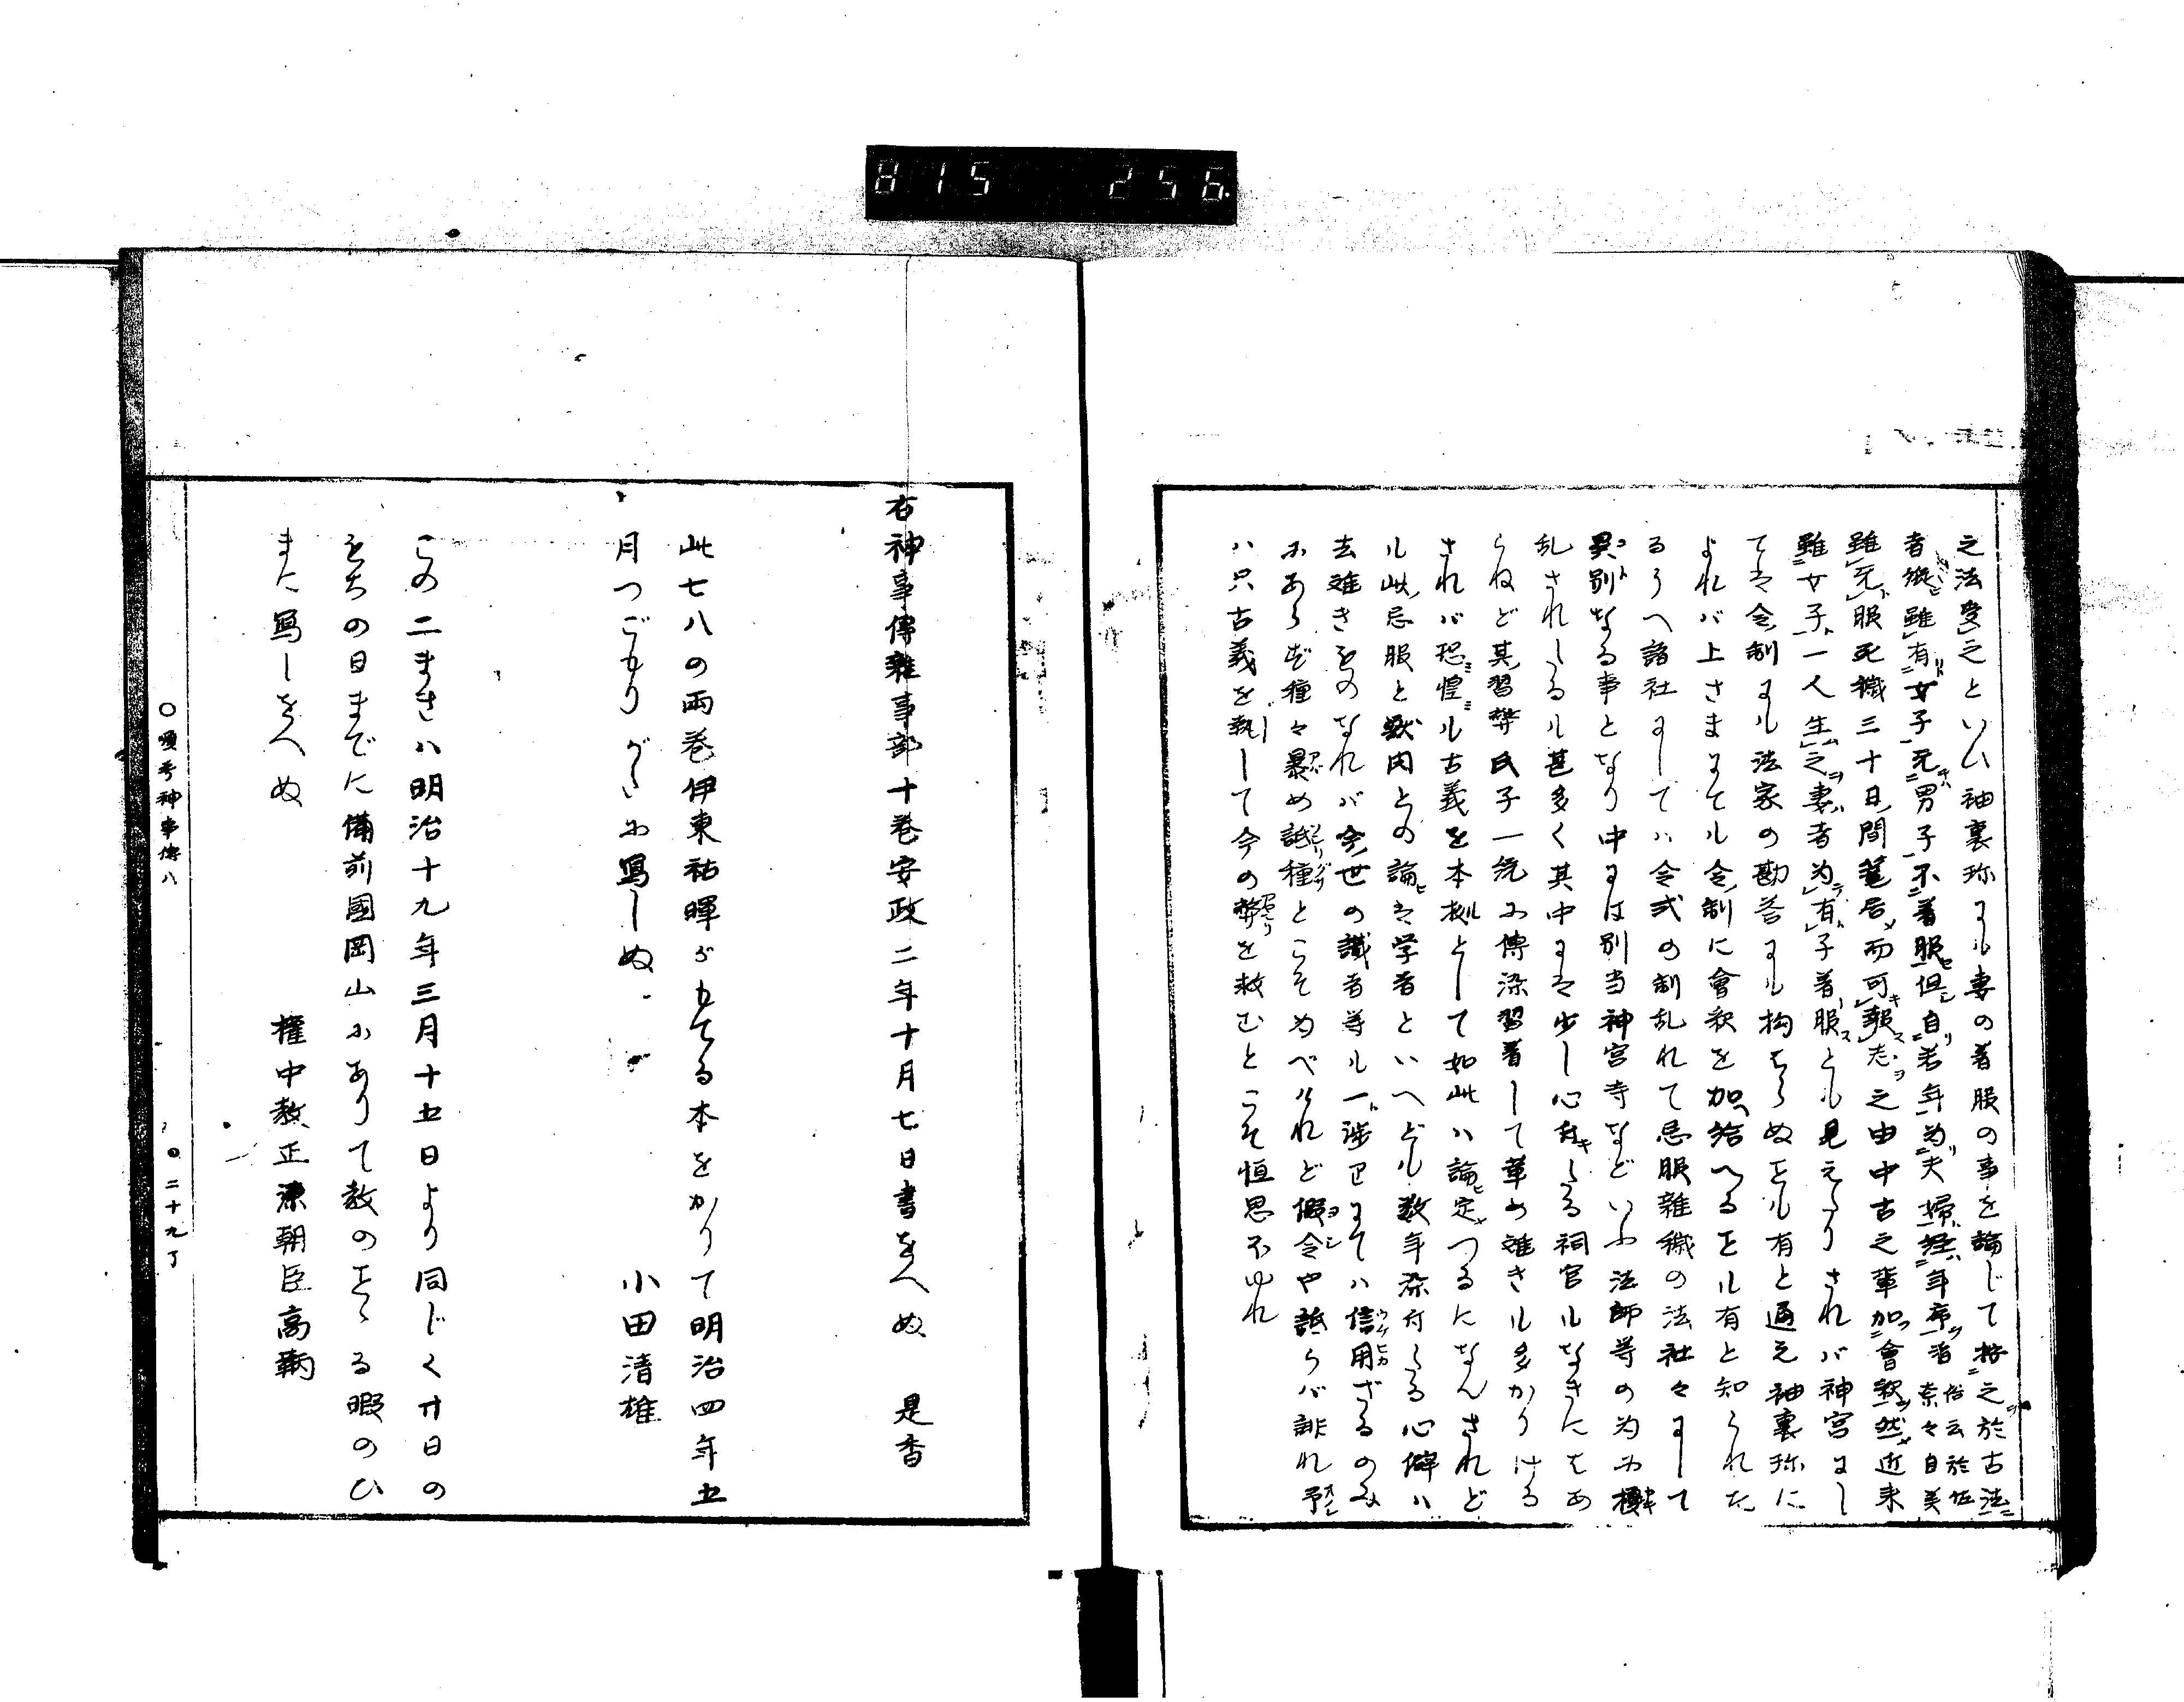 815 256
之法受之といへ袖裏称にも妻の着服の事を論じて於之於古法
者縦雖有女子无男子不着服但自若年為夫婦経年序者 俗云於佐奈々自美
雖无服死穢三十日間篭居而可報志之由中古之輩加會釈然近来
雖女子一人生之妻者為有子着服とも見えたりされバ神宮にし
てハ令制にも法家の勘答にも拘はらぬをも有と通え袖裏称に
よれバ上さまにても令制に會釈を加へ給へるをも有と知られた
るうへ諸社にしてハ令式の制乱れて忌服雑穢の法社々にして
異別なる事となり中には別当神宮寺などいふ法師等の為に
乱されたるも甚多く其中にハ少し心有たる祠官もなきにはあ
らねど其習弊氏子一統に傳染習着して革め難きも多かりける
されバ恐惶も古義を本拠として如此ハ論定つるになんされど
も此忌服と獣肉との論ハ学者といへども数年染付たる心僻ハ
去難きものなれバ今世の識者等も一渉りにてハ信用ざるのみ
にあらず種々暴め誹種とこそめべけれど假令や誹らバ誹れ予
ハ只古義を執して今の弊を救むとこそ恒思ホゆれ
右神事傳雜事部十巻安政二年十月七日書をへぬ 是香
此七八の両巻伊東祐暉がもてる本をかりて明治四年五
月つごもりがたに写しぬ 小田清雄
この二まきハ明治十九年三月十五日より同じく廿日の
をちの日までに備前國岡山にありて教のをゝる暇のひ
まに写しをへぬ
權中教正源朝臣高鞆
〇順考神事傳八 〇二十九了